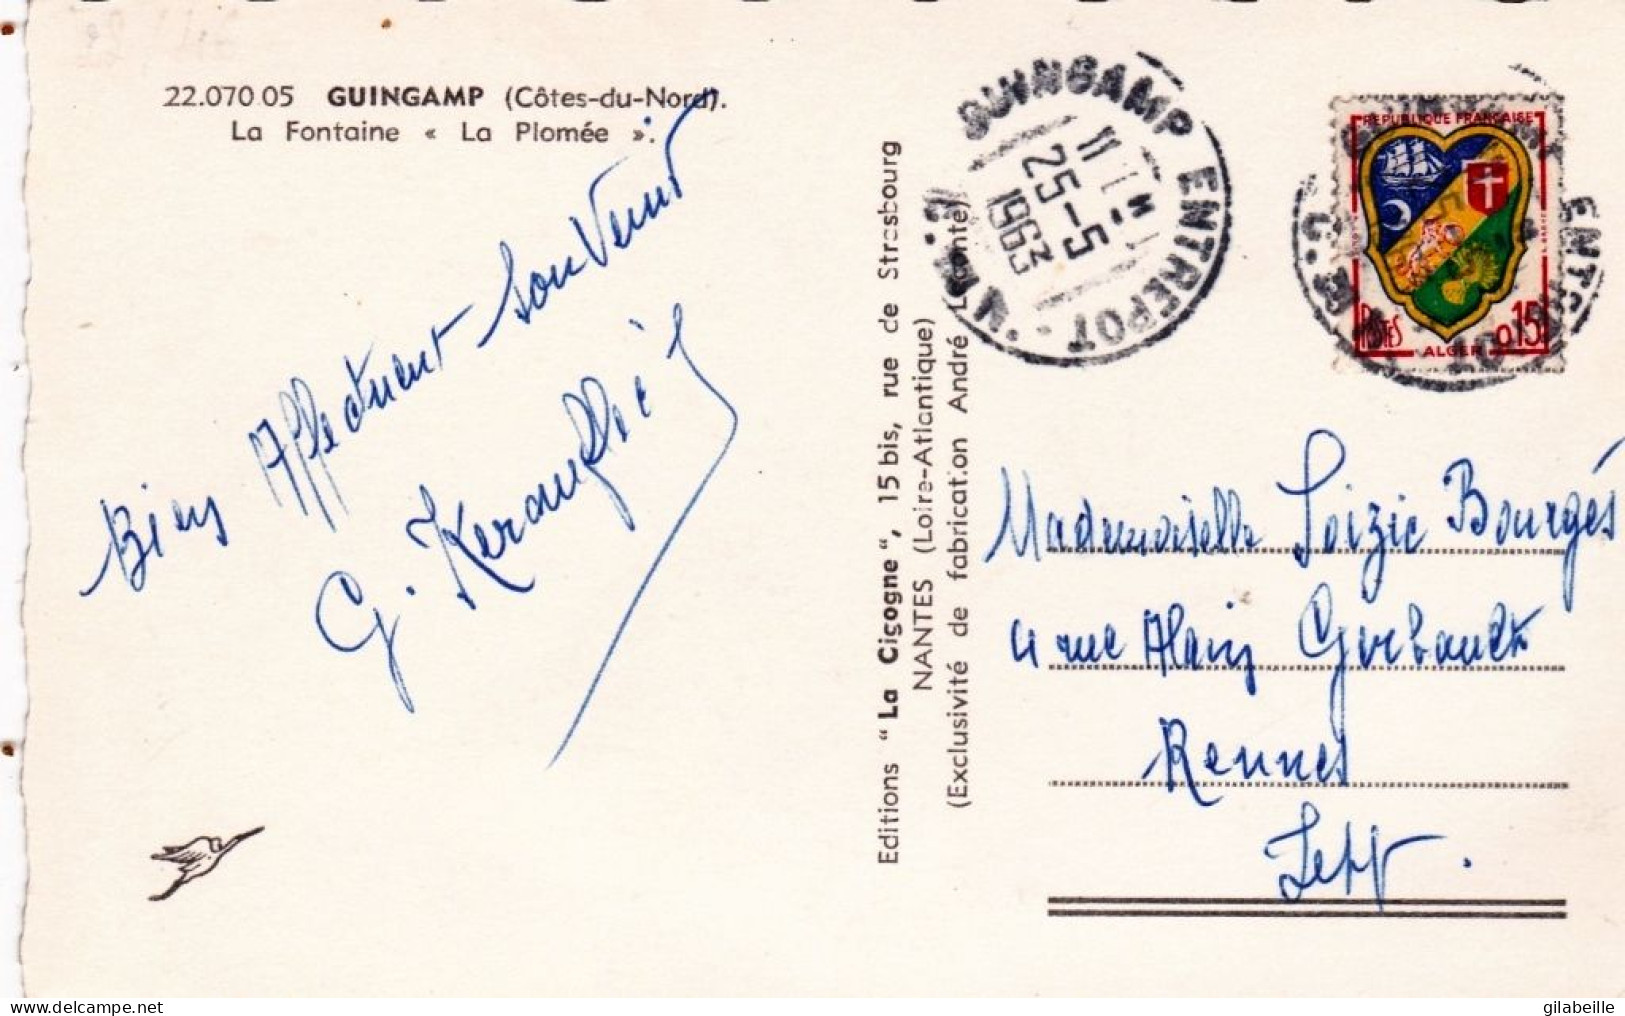 22.070 05 GUINGAMP (Côtes-du-Nord).
La Fontaine « La Plomée ».
Bien Affectueux Souvenir
G.
Editions “ La Cigogne “, 15 bis, rue de Strasbourg
NANTES (Loire-Atlantique)
(Exclusivité de fabrication André Leconte)
GUINGAMP ENTREPOT
11 H
25-5
1963
C. DU N.
REPUBLIQUE FRANÇAISE
POSTES
0,15
ALGER
ENTREPOT
Mademoiselle Loizic Bourgés
4 rue Alain Gerbault
Rennes
gilabeille